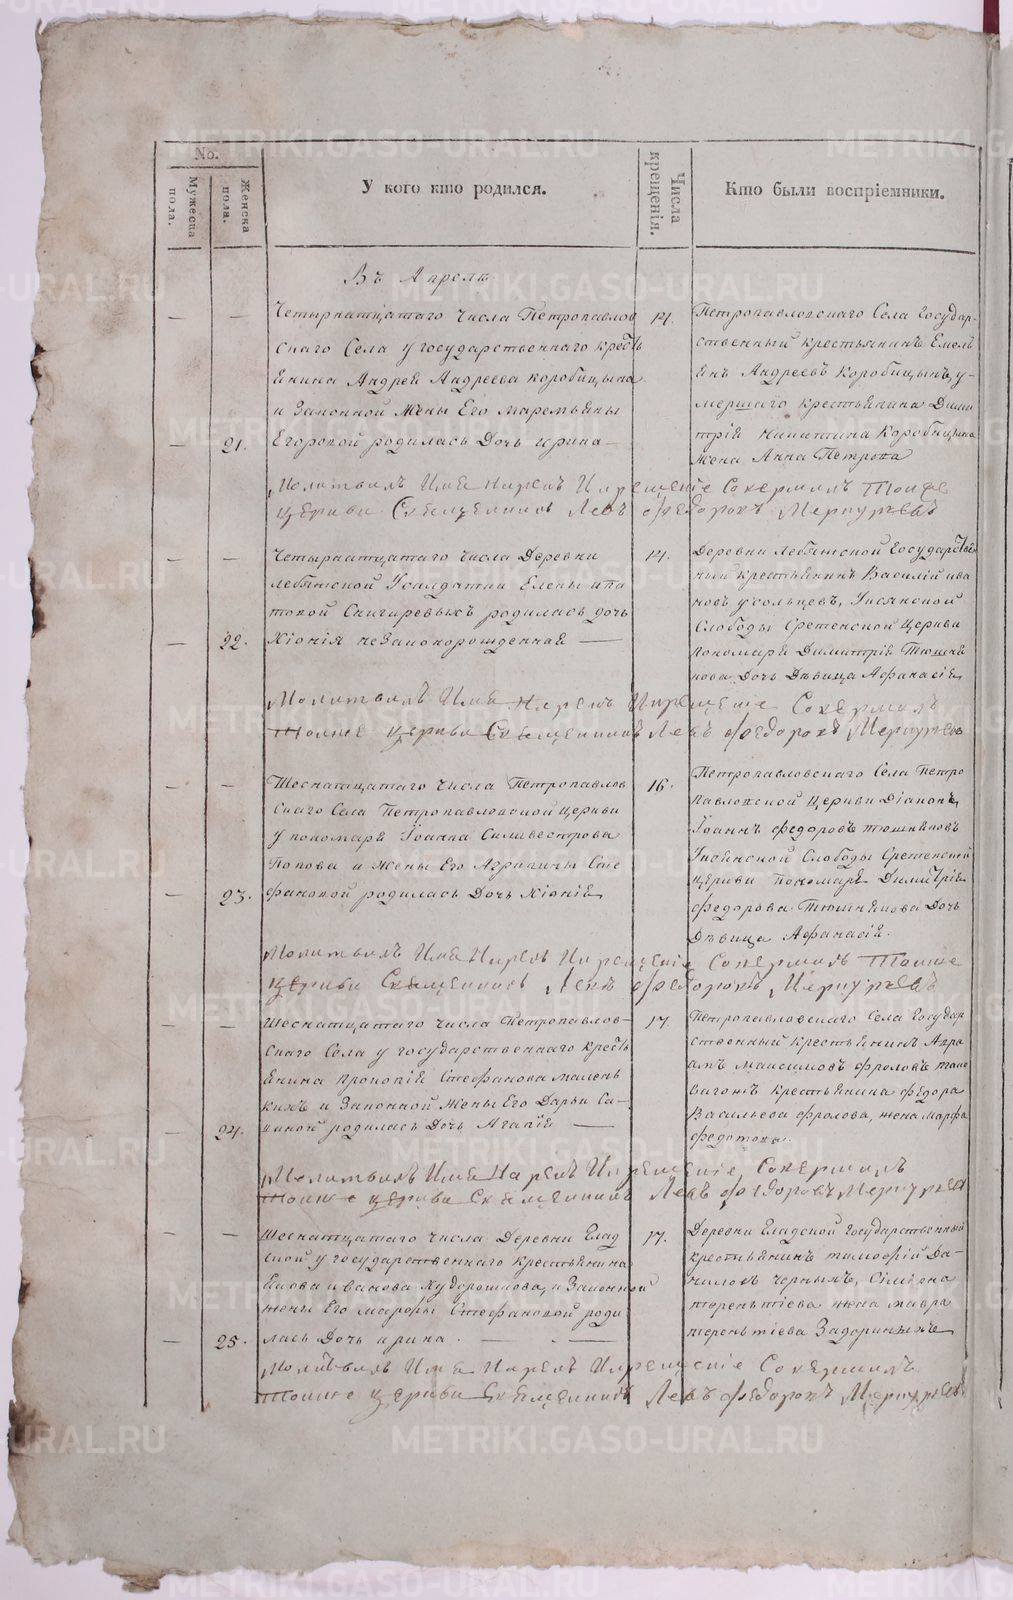 No.
Мужеска пола.
Женска пола.
У кого кто родился.
Числа крещенія.
Кто были воспріемники.
Въ Апреле
Четырнатцатаго числа Петропавлов
скаго Села у государственнаго кресть
янина Андрея Андреева Коробицына
и Законной Жены Его Маремьяны
21. Егоровой родилась Дочь Ирина
14.
Петропавловскаго Села Государ-
ственный крестьянинъ Емель
янъ Андреевъ Коробицынъ, у-
мершаго крестьянина Дими
трія Никитина Коробицына
Жена Анна Петрова
Молитвилъ Имя Нарекъ И Крещеніе Совершилъ Тояже
церкви Священникъ Левъ Федоровъ Меркурьевъ
Четырнатцатаго числа Деревни
Лебяжской У солдатки Елены Ипа
товой Снигиревыхъ родилась дочь
22. Хіонія незаконорожденная
14.
Деревни Лебяжской Государствен
ный крестьянинъ Василій Ива
новъ Усольцевъ,
Слободы Сретенской Церкви
пономаря Димитрія Тюшня
кова Дочь Девица Афанасія
Молитвилъ Имя Нарекъ И Крещеніе Совершилъ
Тояже церкви Священникъ Левъ Федоровъ Меркурьевъ
Шеснатцатаго числа Петропавлов
скаго Села Петропавловской церкви
у пономаря Іоанна Силивестрова
Попова и Жены Его Агрипины Сте
23. фановой родилась Дочь Хіонія
16.
Петропавловскаго Села Петро
павловской Церкви Діаконъ
Іоаннъ Федоровъ Тюшняковъ
Слободы Сретенской
Церкви Пономаря Димитрія
Федорова Тюшнякова Дочь
Девица Афанасія.
Молитвилъ Имя Нарекъ И Крещеніе Совершилъ Тояже
церкви Священникъ Левъ Федоровъ Меркурьевъ
Шеснатцатаго числа Петропавлов-
скаго Села у государственнаго кресть
янина Прокопія Стефанова Мален
кихъ и Законной Жены Его Дарьи Са-
24. виной родилась Дочь Агапія
17.
Петропавловскаго Села Государ
ственный Крестьянинъ Авра
амъ Максимовъ Фроловъ тако
ваго жъ Крестьянина Федора
Васильева Фролова, жена Марфа
Федотова.
Молитвилъ Имя Нарекъ И Крещеніе Совершилъ
Тояже церкви Священникъ Левъ Федоровъ Меркурьевъ
Шеснатцатаго числа Деревни Глад
ской у государственнаго крестьянина
Якова Иванова Худорошкова, и Законной
жены Его Мавры Стефановой роди
25. лась Дочь Ирина.
17.
Деревни Гладской Государственный
крестьянинъ Тимофій Да-
ниловъ Черныхъ,
терентіева жена Мавра
терентіева Задориныхъ
Молитвилъ Имя Нарекъ И Крещеніе Совершилъ
Тояже церкви Священникъ Левъ Федоровъ Меркурьевъ
METRIKI.GASO-URAL.RU